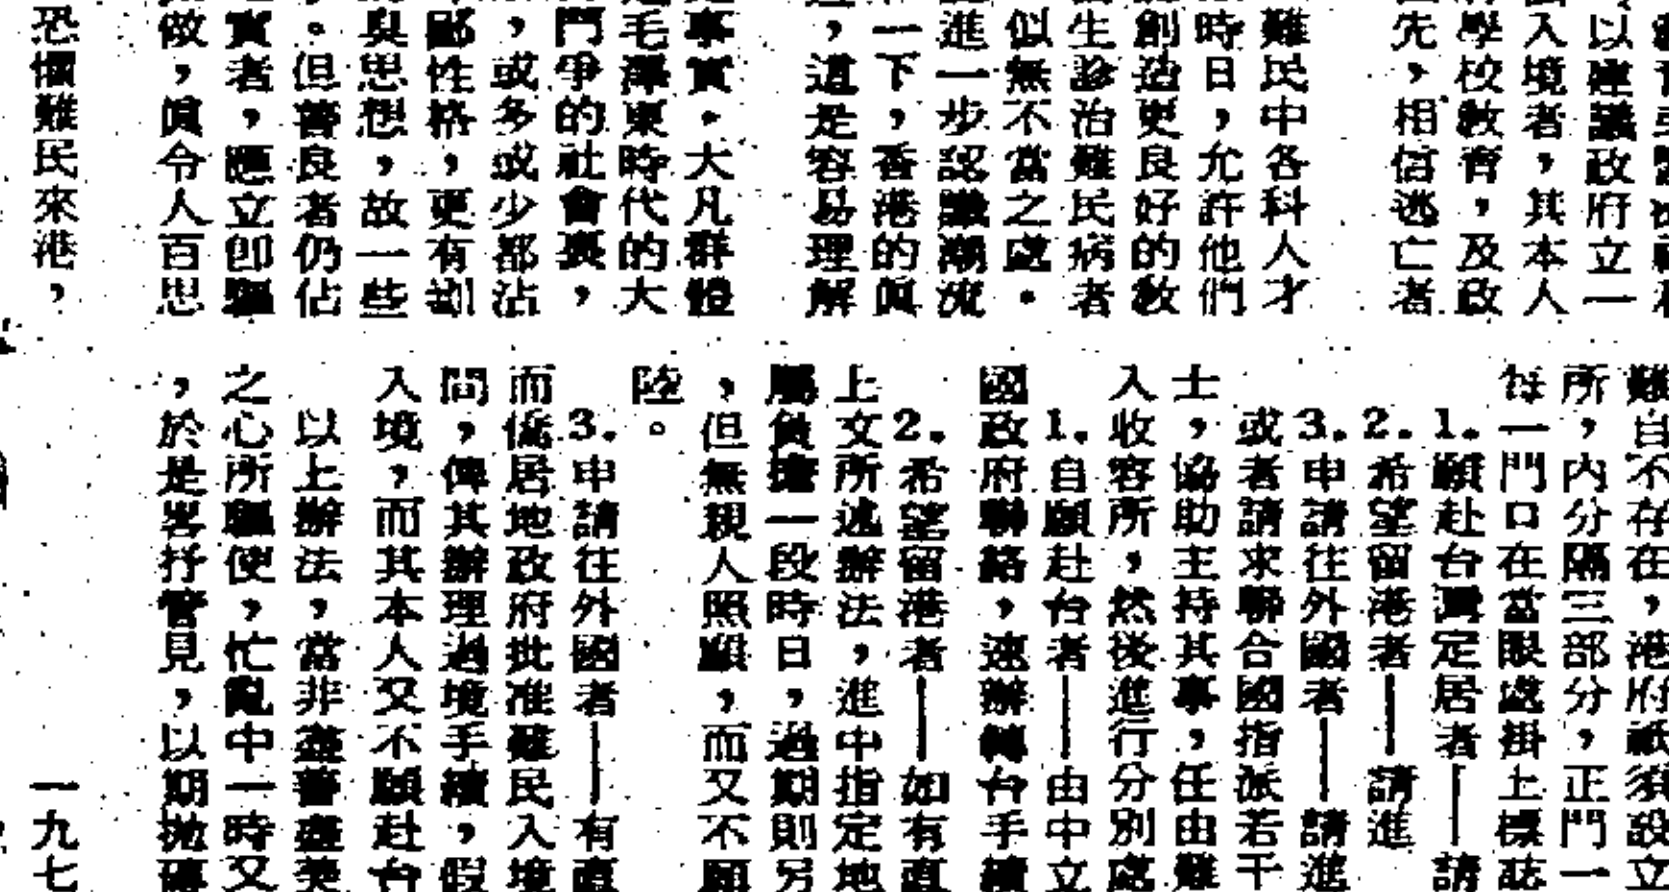 以建議政府立一
入境者，其本人
學校教育，及政
先，相信逃亡者
難民中各科人才
時日，允許他們
創造更良好的教
生診治難民病者
似無不當之處。
進一步認識潮流
一下，香港的眞
，這是容易理解
事實。大凡群體
毛澤東時代的大
鬥爭的社會裏，
，或多或少都沾
鄙性格，更有
臭思想，故一些
。但善良者仍佔
實者，應立卽驅
做，眞令人百思
恐懼難民來港，
難自不存在，港府祇須設立
所，內分隔三部分，正門一
每一門口在當眼處掛上標誌
1.願赴台灣定居者——請
2.希望留港者——請進
3.申請往外國者——請進
或者請求聯合國指派若干
士，協助主持其事，任由難
入收容所，然後進行分別處
1.自願赴台者——由中立
國政府聯絡，速辦轉台手續
2.希望留港者——如有直
上文所述辦法，進中指定地
屬負擔一段時日，過期則另
，但無親人照顧，而又不願
陸。
3.申請往外國者——有直
而僑居地政府批准難民入境
間，俾其辦理過境手續，假
入境，而其本人又不願赴台
以上辦法，當非盡善盡美
之心所驅使，忙亂中一時又
，於是畧抒管見，以期拋磚
一九七